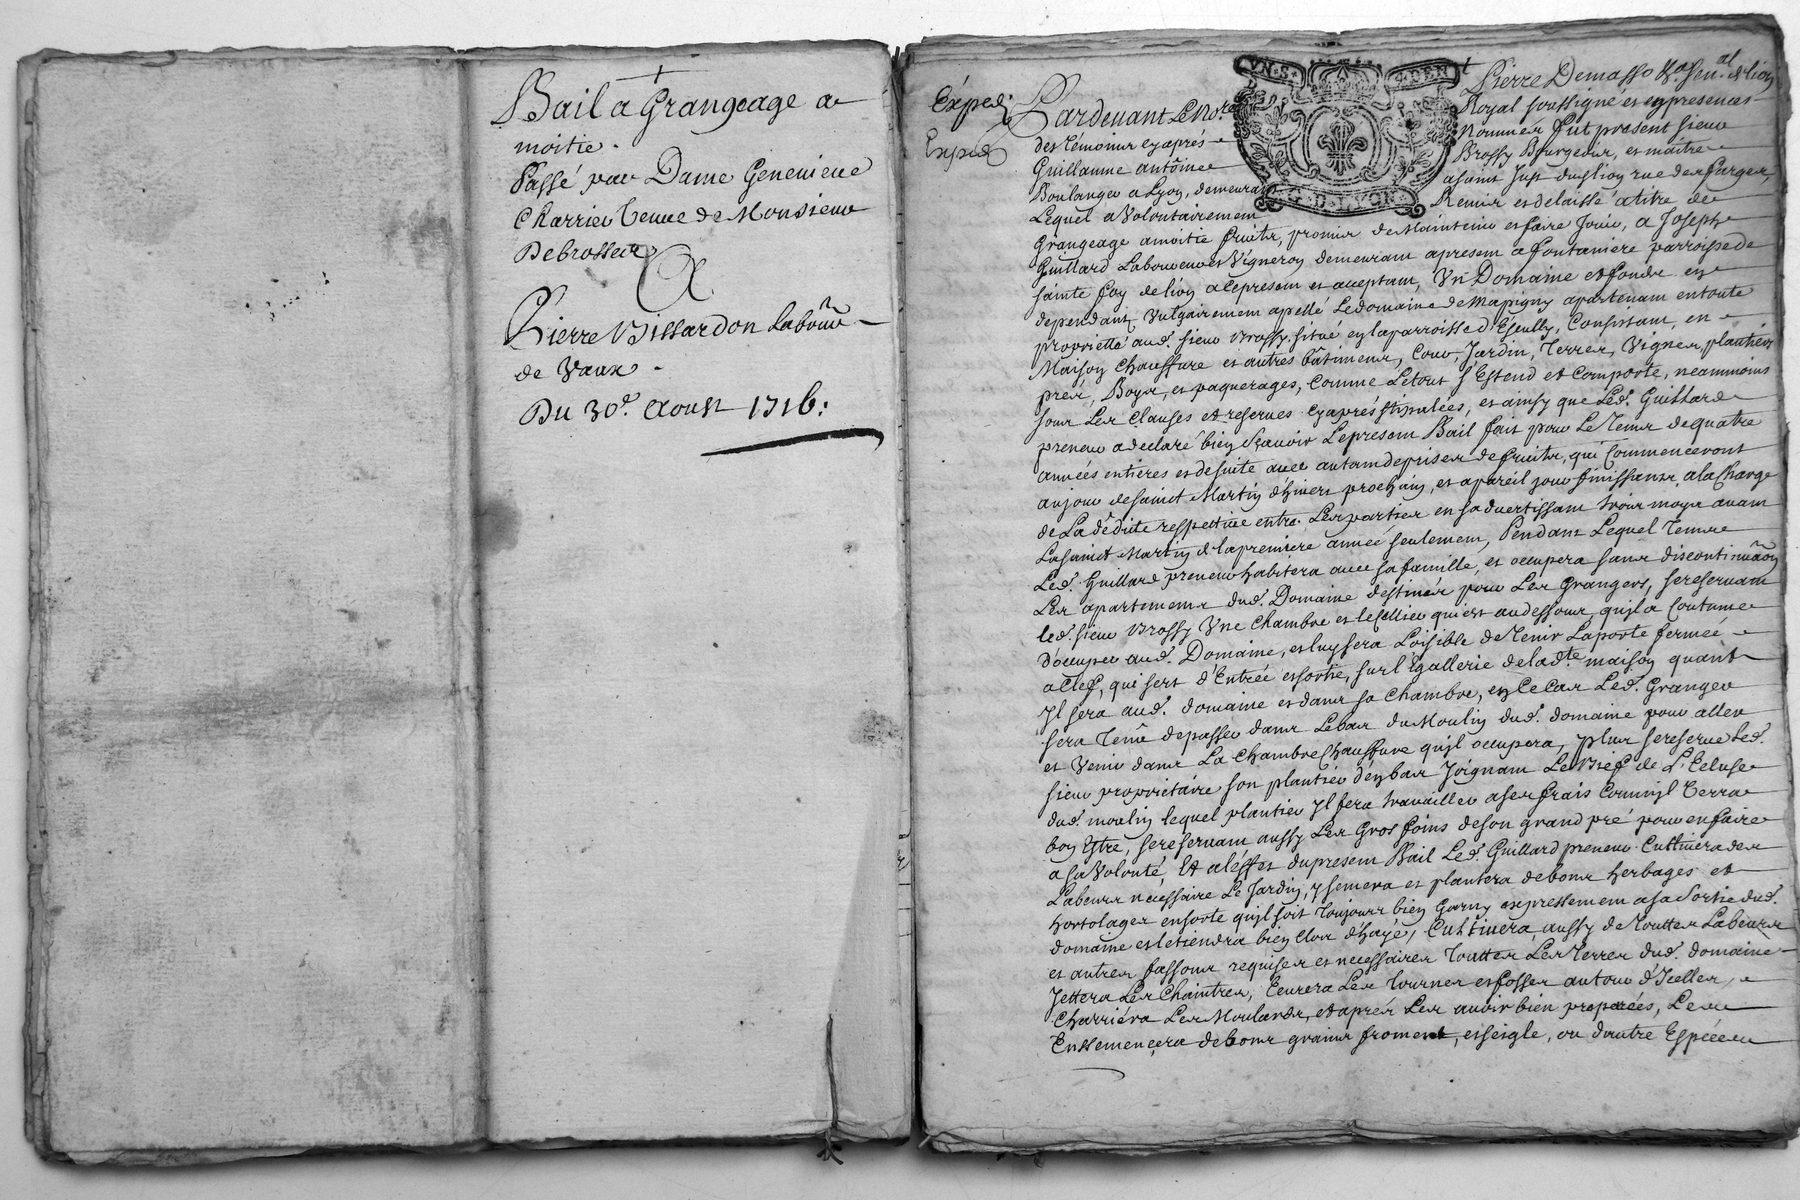 Bail a Grangeage a
moitie .
Passé par Dame Genevieve
Charrier veuve de Monsieur
Debrosse
&
Pierre Bissardon labour
de Vaux .
Du 30e. Aoust 1716:
Exped.
Exped
UN S 4 DEN
G. D. LYON
Pierre Demasso
Pardevant Le No.re Royal soussigné et en presences
des témoins cy aprés nommés fut present sieur
Guillaume antoine Brossy Bourgeois, et maitre
Boulanger a Lyon, demeurant a saint Just dud. lion rue des farges,
Lequel a volontairement Remis et delaissé a titre de
Grangeage a moitié fruits, promis de Maintenir et faire Jouir, a Joseph
Guillard Laboureur et Vigneron demeurant apresent a fontaniere parroisse de
sainte foy de lion a ce present et acceptant, Un Domaine et fonds en
dependant, vulgairement apellé Le domaine de Mapigny apartenant en toute
proprietté aud. sieur Brossy, situé en la parroisse d'Escully, Consistant, en
Maison Chauffure et autres bâtiments, Cour, Jardin, Terres, Vignes, plantiers
prés, Boys, et paquerages, Comme Le tout s'Estend et Comporte, neammoins
sous Les Clauses et reserves cy aprés stipulées, et ainsy que Led. Guillard
preneur a declaré bien sçavoir Le present Bail fait pour Le Tems de quatre
années entieres et de suite avec autant de prises de fruits, qui Commenceront
au jour de saint Martin d'hivert prochain, et a pareil jour finissants, a la Charge
de La dédite respective entre Les parties en s'advertissant trois moys avant
La saint Martin de la premiere année seulement, Pendant Lequel Tems
Led. Guillard preneur habitera avec sa famille, et occupera sans discontinuaôn
Les apartements dud. Domaine destinés pour Les Grangers, se reservant
led. sieur Brossy Une Chambre et le Cellier qui est au dessous, qu'il a Coutume
d'occuper aud. Domaine, et luy sera Loisible de Tenir La porte fermée
a Clef, qui sert d'Entrée et sortie, sur l'Egallerie de lad.te maison quant
Il sera aud. domaine et dans sa Chambre, en Ce Cas Led. Granger
sera Tenû de passer dans Le bas du Moulin dud. domaine pour aller
et Venir dans La Chambre Chauffure qu'il occupera, plus se reserve Led.
sieur propriétaire son plantier d'en bas Joignant Le Bief de L'Ecluse
dud. moulin lequel plantier Il fera travailler a ses frais Comm'il Verra
bon Estre, se reservant aussy Les Gros foins de son grand pré pour en faire
a sa Volonté, Et a l'éffet du present Bail Led. Guillard preneur Cultivera des
Labeurs nécessaire Le Jardin, y semera et plantera de bons herbages et
hortolages en sorte qu'il soit Toujours bien Garny expressement a sa Sortie dud.
domaine et le tiendra bien Clos d'haye, Cultivera aussy de Touttes Labeurs
et autres fassons requises et necessaires Touttes Les Terres dud. domaine
Jettera Les Chaintres, Ecurera Les Tournes et fosses autour d'Icelles,
Charriéra Les Moulards, et aprés Les avoir bien preparées, Les
Enssemencera de bons grains froment, et seigle, ou d'autre Espéce